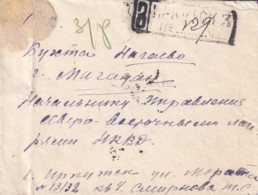 З
ИРКУТСК 3
№ 129
з/р
Бухта Нагаево
г. Магадан
Начальнику Управления
Северо-Восточными лаг
рями НКВД
г. Иркутск ул. Марата
№ 13/32 кв 4. Смирнова